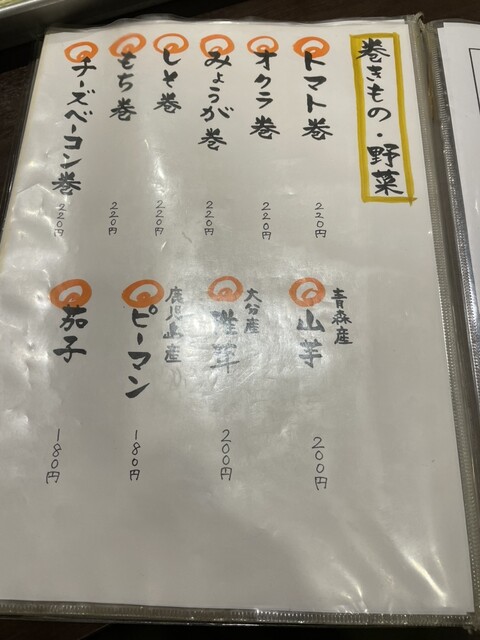 巻きもの・野菜
トマト巻
220円
オクラ巻
220円
みょうが巻
220円
しそ巻
220円
もち巻
220円
チーズベーコン巻
220円
青森産
山芋
200円
大分産
椎茸
200円
鹿児島産
ピーマン
180円
茄子
180円